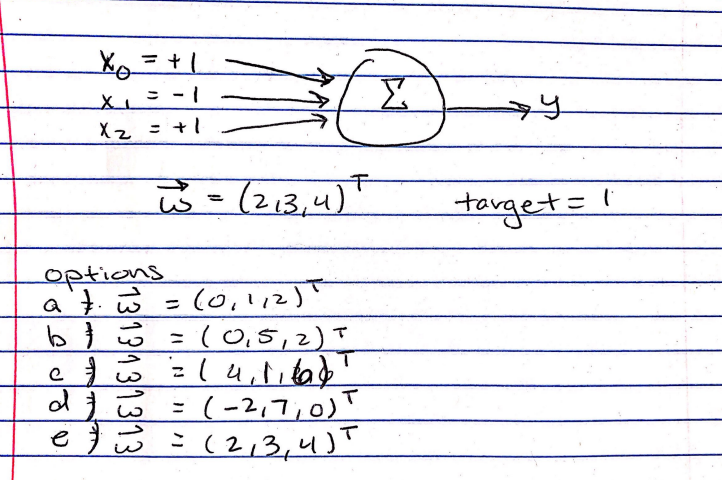 x₀ = +1
x₁ = -1
x₂ = +1
Σ
y
w⃗ = (2,3,4)ᵀ target = 1
options
a) w⃗ = (0,1,2)ᵀ
b) w⃗ = (0,5,2)ᵀ
c) w⃗ = (4,1,6)ᵀ
d) w⃗ = (-2,7,0)ᵀ
e) w⃗ = (2,3,4)ᵀ